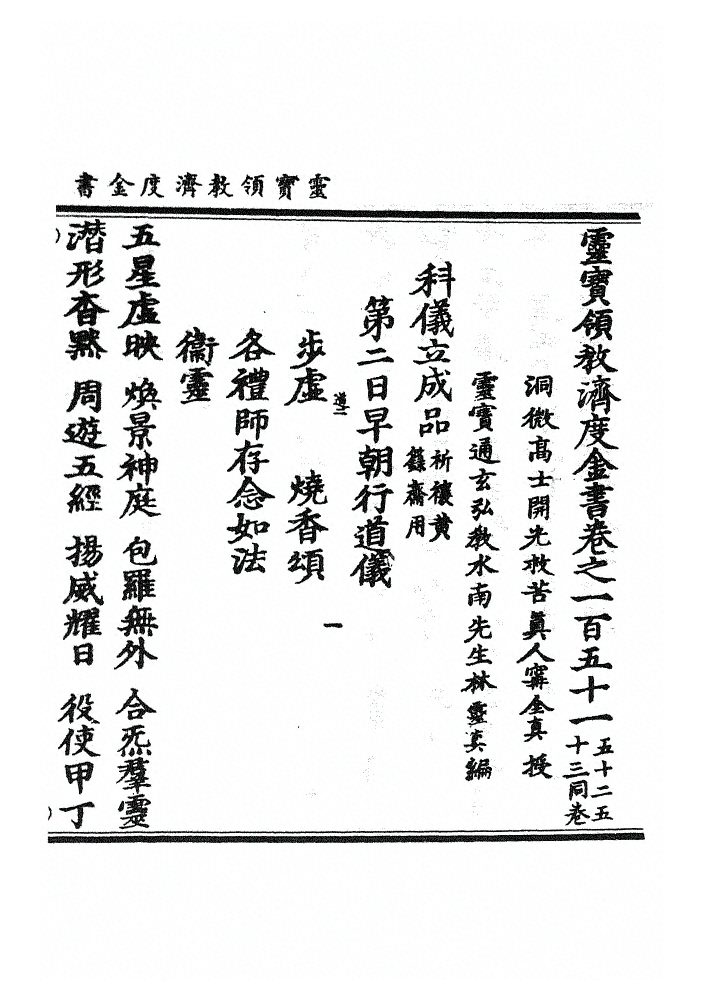 靈寶領教濟度金書
靈寶領教濟度金書卷之一百五十一 五十二五十三同卷
洞微高士開光救苦真人甯全真授
靈寶通玄弘教水南先生林靈真編
科儀立成品 祈禳黄籙齋用
第二日早朝行道儀
一
步虛 燒香頌
各禮師存念如法
衞靈
五星虛映 煥景神庭 包羅無外 合炁羣靈
潛形杳默 周遊五經 揚威耀日 役使甲丁